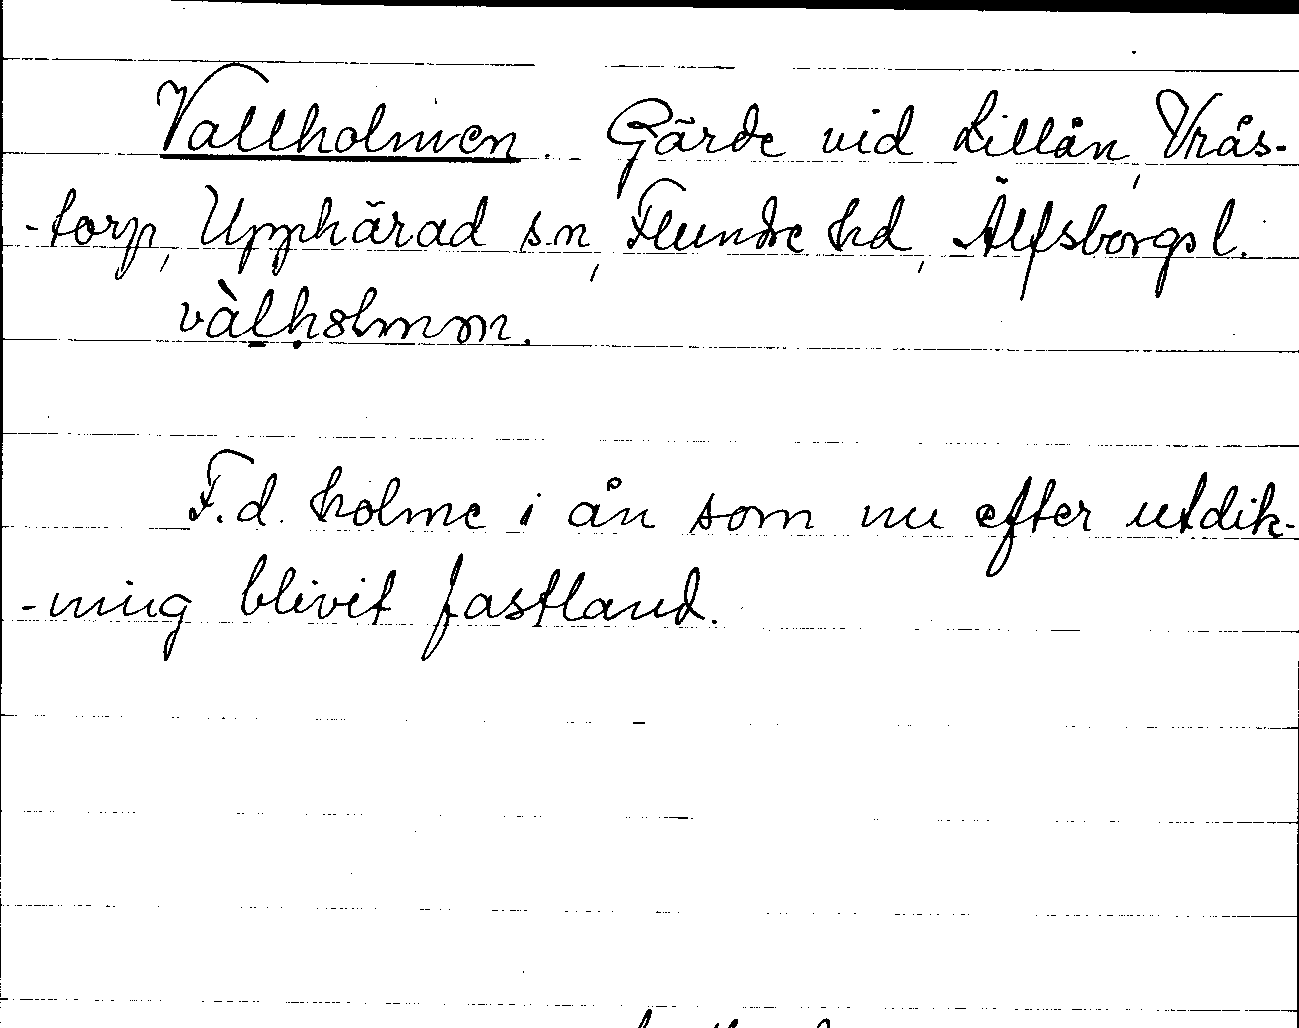 Vallholmen. Gärde vid Lillån, Vrås-
-torp, Upphärad sn, Flundre hd, Älfsborgs l.
vàlholmen.
F.d. holme i ån som nu efter utdik-
-ning blivit fastland.